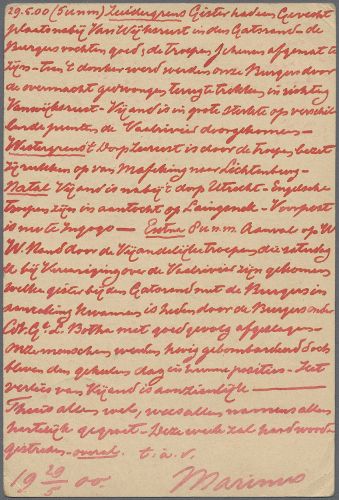 29.5.00 (5 u n m) Zuidergrens Gister had een Gevecht
plaats nabij Van Wijksrust in den Gatsrand - de
Burgers vochten goed; de troepen schenen afgemat te
zijn - ten 't donker werd werden onze Burgers door
de overmacht gedwongen terug te trekken in richting
Vanwijksrust - Vijand is in grote sterkte op verschil
lende punten de Vaalrivier doorgekomen -
Westergrens 't Dorp Zeerust is door de troepen bezet
zij rukken op van Mafeking naar Lichtenburg -
Natal Vijand is nabij 't dorp Utrecht - Engelsche
troepen zijn in aantocht op Laingsnek - Voorpost
is nu te Ingogo — Extra 8 u n.m. Aanval op W
W. Rand door de Vijandelijke troepen die zaterdag
ll bij Vereeniging over de Vaalrivier zijn gekomen
welke gister bij den Gatsrand met de Burgers in
aanraking kwamen is heden door de Burgers onder
Cdt. Gl. L. Botha met goed gevolg afgeslagen -
onze menschen werden hevig gebombardeerd doch
bleven den geheelen dag in hunne posities - Het
verlies van Vijand is aanzienlijk —
Thuis alles wel, wees allen namens allen
hartelijk gegroet - Deze week zal hard worden
gestreden - overal. t. à. v.
19 29/5 00. Marinus